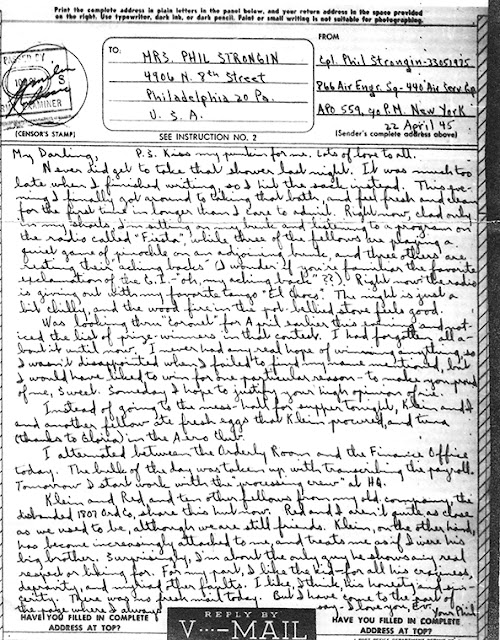 Print the complete address in plain letters in the panel below, and your return address in the space provided
on the right. Use typewriter, dark ink, or dark pencil. Faint or small writing is not suitable for photographing.
TO:
MRS. PHIL STRONGIN
4906 N. 8th Street
Philadelphia 20 Pa.
U. S. A.
FROM
Cpl. Phil Strongin-33051975
866 Air Engr. Sq-440 Air Serv Gp.
APO 559, c/o P.M. New York
22 April 45
(CENSOR'S STAMP)
SEE INSTRUCTION NO. 2
(Sender's complete address above)
My Darling, P.S. Kiss my punkin for me. Lots of love to all.
Never did get to take that shower last night. It was much too
late when I finished writing, so I hit the sack instead. This eve-
ning I finally got around to taking that bath, and feel fresh and clean
for the first time in longer than I care to admit. Right now, clad only
in my shorts, I'm sitting on my bunk and listening to a program on
the radio called "Fiesta", while three of the fellows are playing a
quiet game of pinochle on an adjoining bunk, and three others are
resting their aching backs (I wonder if you're familiar the favorite
explanation of the G.I. "oh, my aching back"??). Right now the radio
is giving out with my favorite tango "El Choclo". The night is just a
bit chilly and the wood fire in the pot-bellied stove feels good.
Was looking thru "Coronet" for April earlier this evening and not-
iced the list of prize-winners in that contest. I had forgotten all a-
bout it until now. I never had any real hope of winning anything, so
I wasn't disappointed when I failed to find my name mentioned, but
I would have liked to win for one particular reason - to make you proud
of me, Sweet. Someday I hope to justify your high opinion of me.
Instead of going to the mess-hall for supper tonight, Klein and I
and another fellow ate fresh eggs that Klein procured, and tuna
(thanks to Gloria) in the Aero Club.
I alternated between the Orderly Room and the Finance Office
today. The bulk of the day was taken up with transcribing the payroll.
Tomorrow I start work with the "processing crew" at HQ.
Klein and Red and ten other fellows from my old company, the
disbanded 1807 Ord Co, share this hut now. Red and I aren't quite as close
as we used to be, although we are still friends. Klein, on the other hand,
has become increasingly attached to me, and treats me as if I were his
big brother. Surprisingly, I'm about the only guy he shows any real
respect or liking for. For my part, I like the kid - for all his craziness,
and his other faults. I like, I think, his honesty and
There was no fresh mail today. But I have gone to the part of
the page where I always say - I love you, Ev. Your Phil
HAVE YOU FILLED IN COMPLETE
ADDRESS AT TOP?
REPLY BY
V···-MAIL
HAVE YOU FILLED IN COMPLETE
ADDRESS AT TOP?